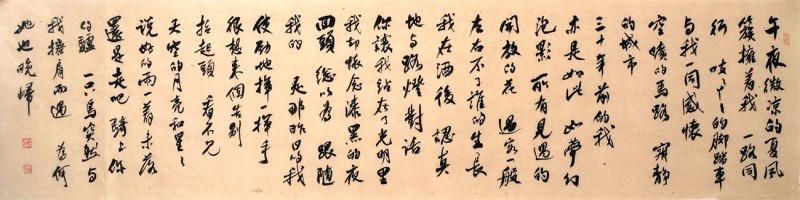 午夜微凉的夏风
簇擁着我 一路同
行 吱丫丫的脚踏车
与我一同感懷
空曠的馬路 寂静
的城市
三十年前的我
亦是如此 如夢幻
泡影 所有見過的
開放的花 過客一般
左右不了誰的生長
我在酒後 認真
地与路燈對话
你讓我站在了光明里
我却懷念漆黑的夜
回頭 總以為 跟随
我的 是那昨日的我
使劲地揮一揮手
很想来個告别
抬起頭 看不見
天空的月亮和星星
说好的雨 着未落
還是走吧 騎上你
的驢 一只馬突然与
我擦肩而過 為何
她也晚歸